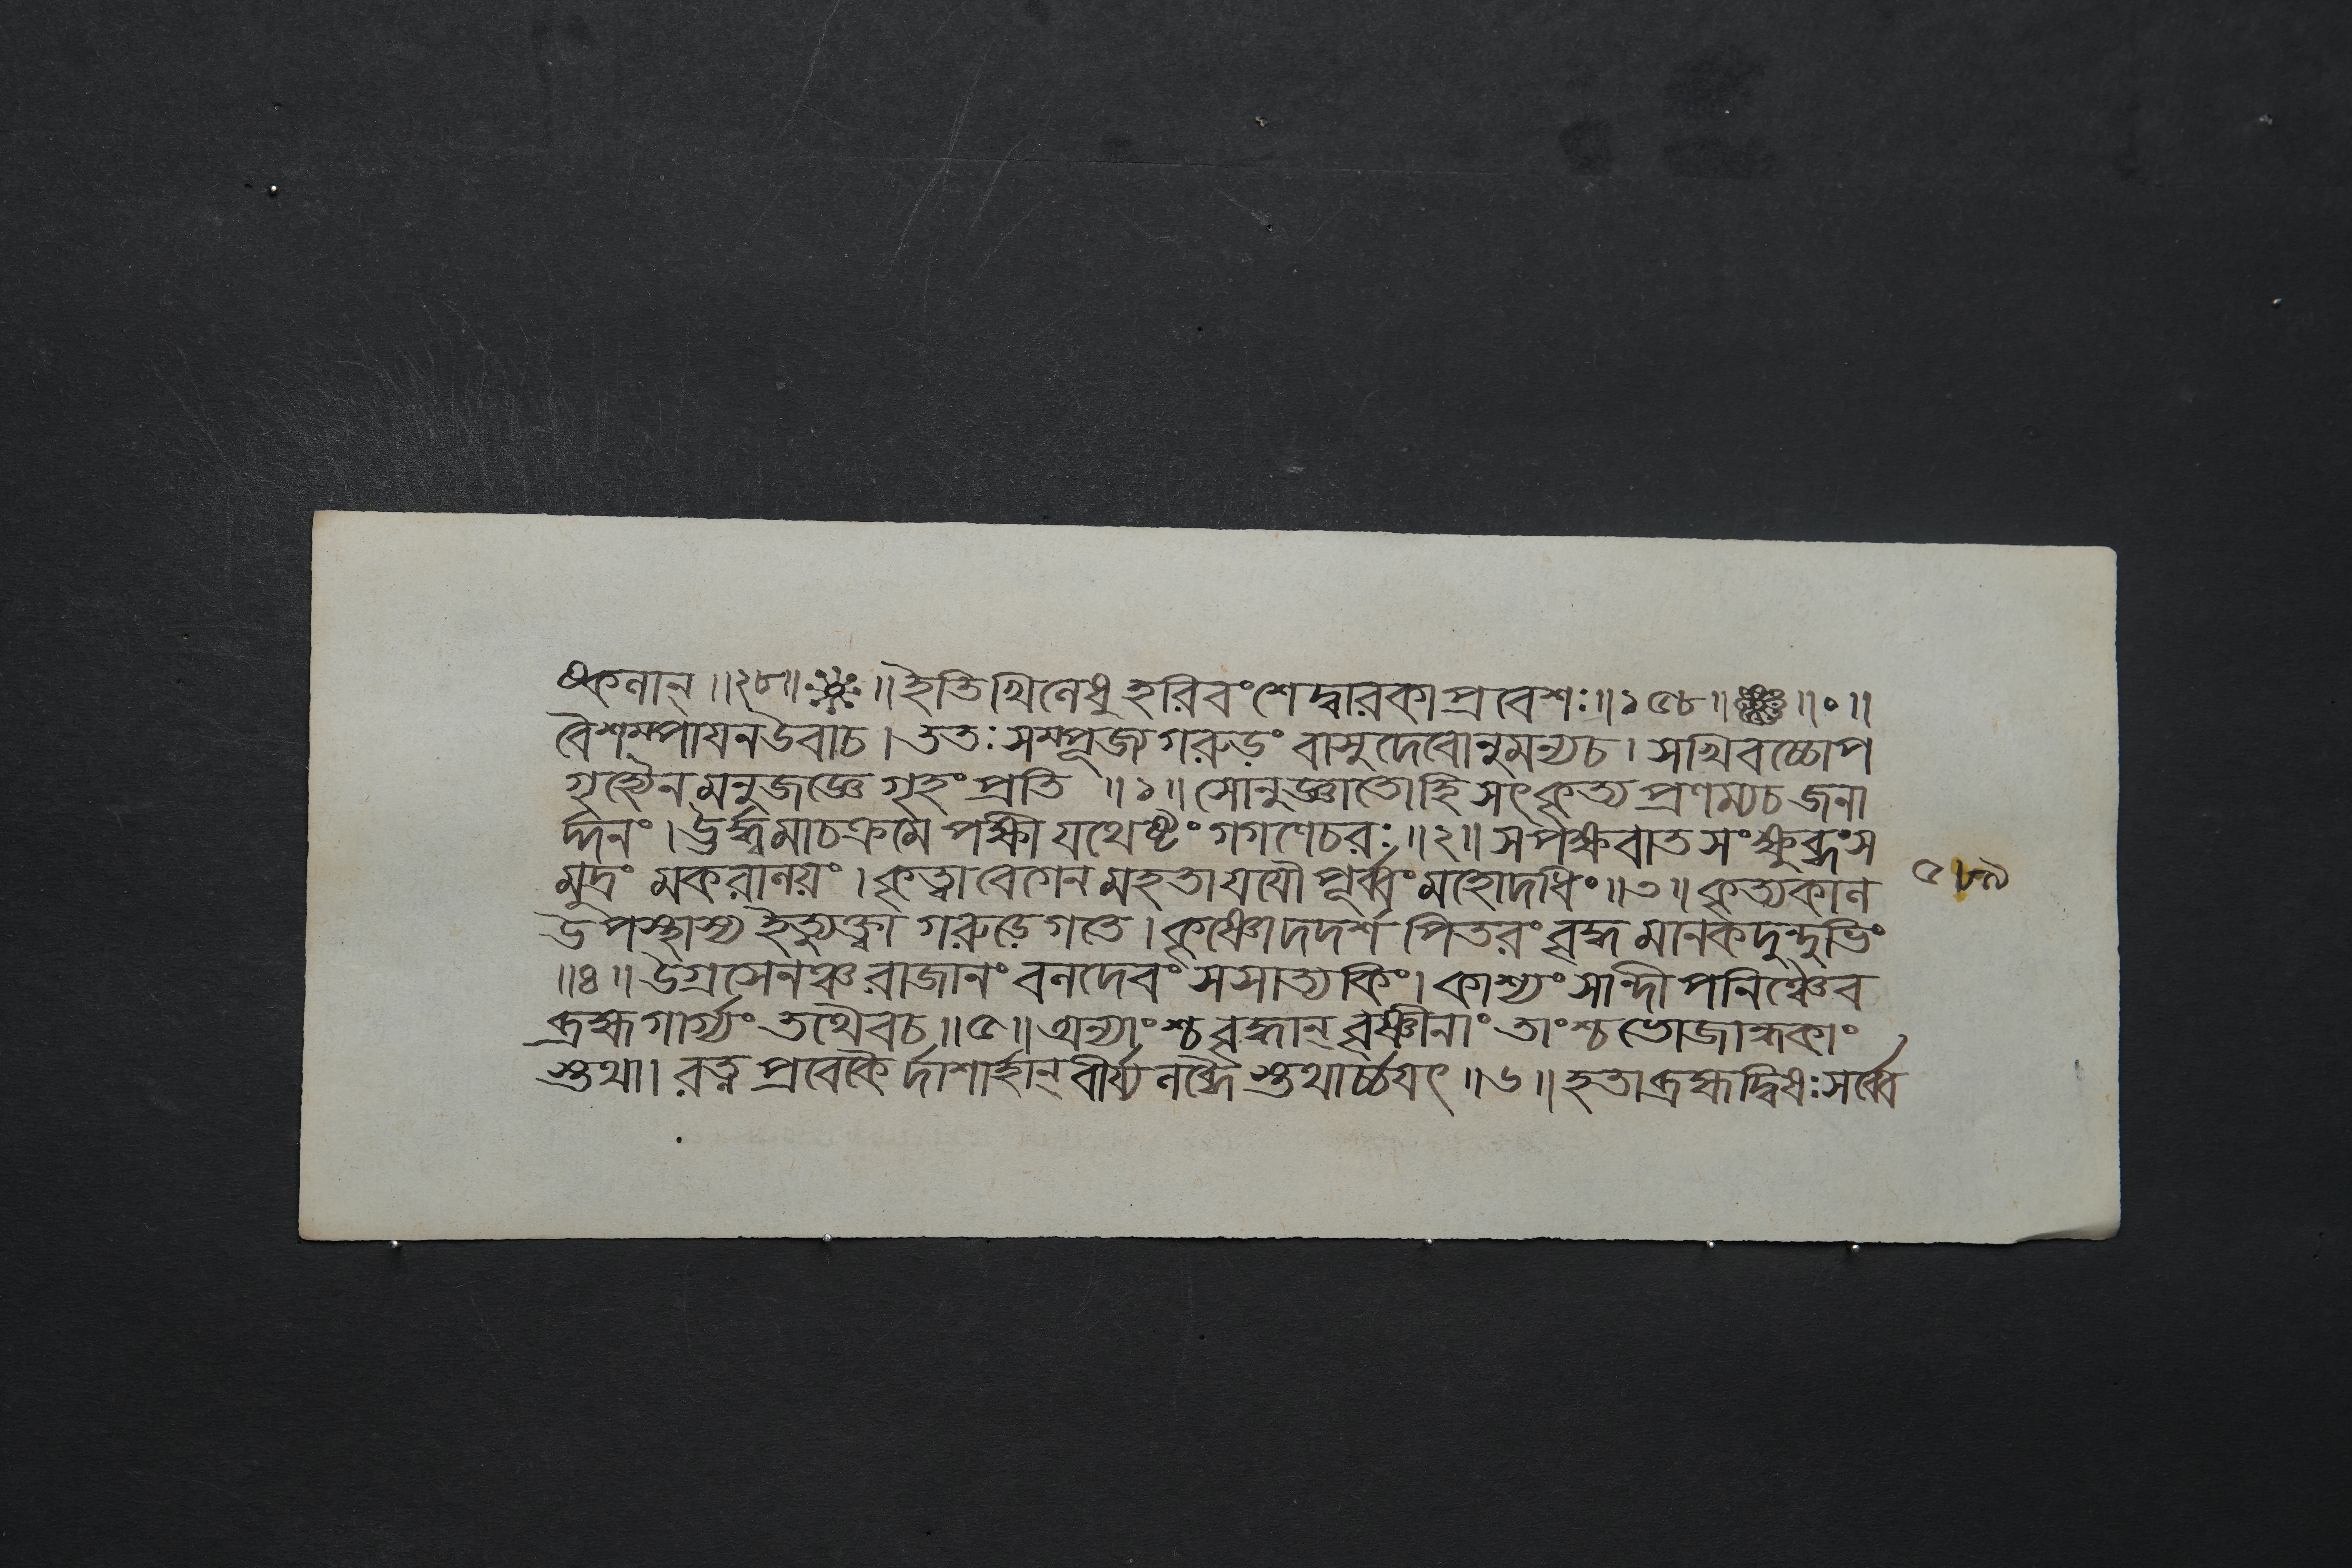 ণ্ডকলান্ ॥২৮॥ ॥ ইতি খিলেষু হরিবংশে দ্বারকাপ্রবেশঃ ॥১৫৮॥ ॥०॥
বৈশম্পায়ন উবাচ । ততঃ সম্পূজ্য গরুড়ং বাসুদেবোনুমন্যচ । সখিবচ্চোপ
গৃহ্যৈনমনুজজ্ঞে গৃহং প্রতি ॥১॥ সোনুজ্ঞাতোহি সৎকৃত্য প্রণম্যচ জনা
র্দ্দনং । ঊর্দ্ধ্বমাচক্রমে পক্ষী যথেষ্টং গগণেচরঃ ॥২॥ সপক্ষবাতসংক্ষুব্ধংস
মুদ্রং মকরালয়ং । কৃত্বা বেগেন মহতা যযৌ পূর্ব্বং মহোদধিং ॥৩॥ কৃত্যকাল
উপস্থাস্য ইত্যুক্ত্বা গরুড়ে গতে । কৃষ্ণো দদর্শ পিতরং বৃদ্ধমানকদুন্দুভিং
॥৪॥ উগ্রসেনঞ্চ রাজানং বলদেবং সসাত্যকিং । কাশ্যং সান্দীপনিঞ্চৈব
ব্রহ্মগার্গ্যং তথৈবচ ॥৫॥ অন্যাংশ্চ বৃদ্ধান্ বৃষ্ণীনাং তাংশ্চ ভোজান্ধকাং
স্তথা । রত্নপ্রবেকৈর্দাশার্হান্ বীর্য্যলব্ধৈস্তথার্চ্চয়ৎ ॥৬॥ হতা ব্রহ্মদ্বিষঃ সর্ব্বে
৫৮৯